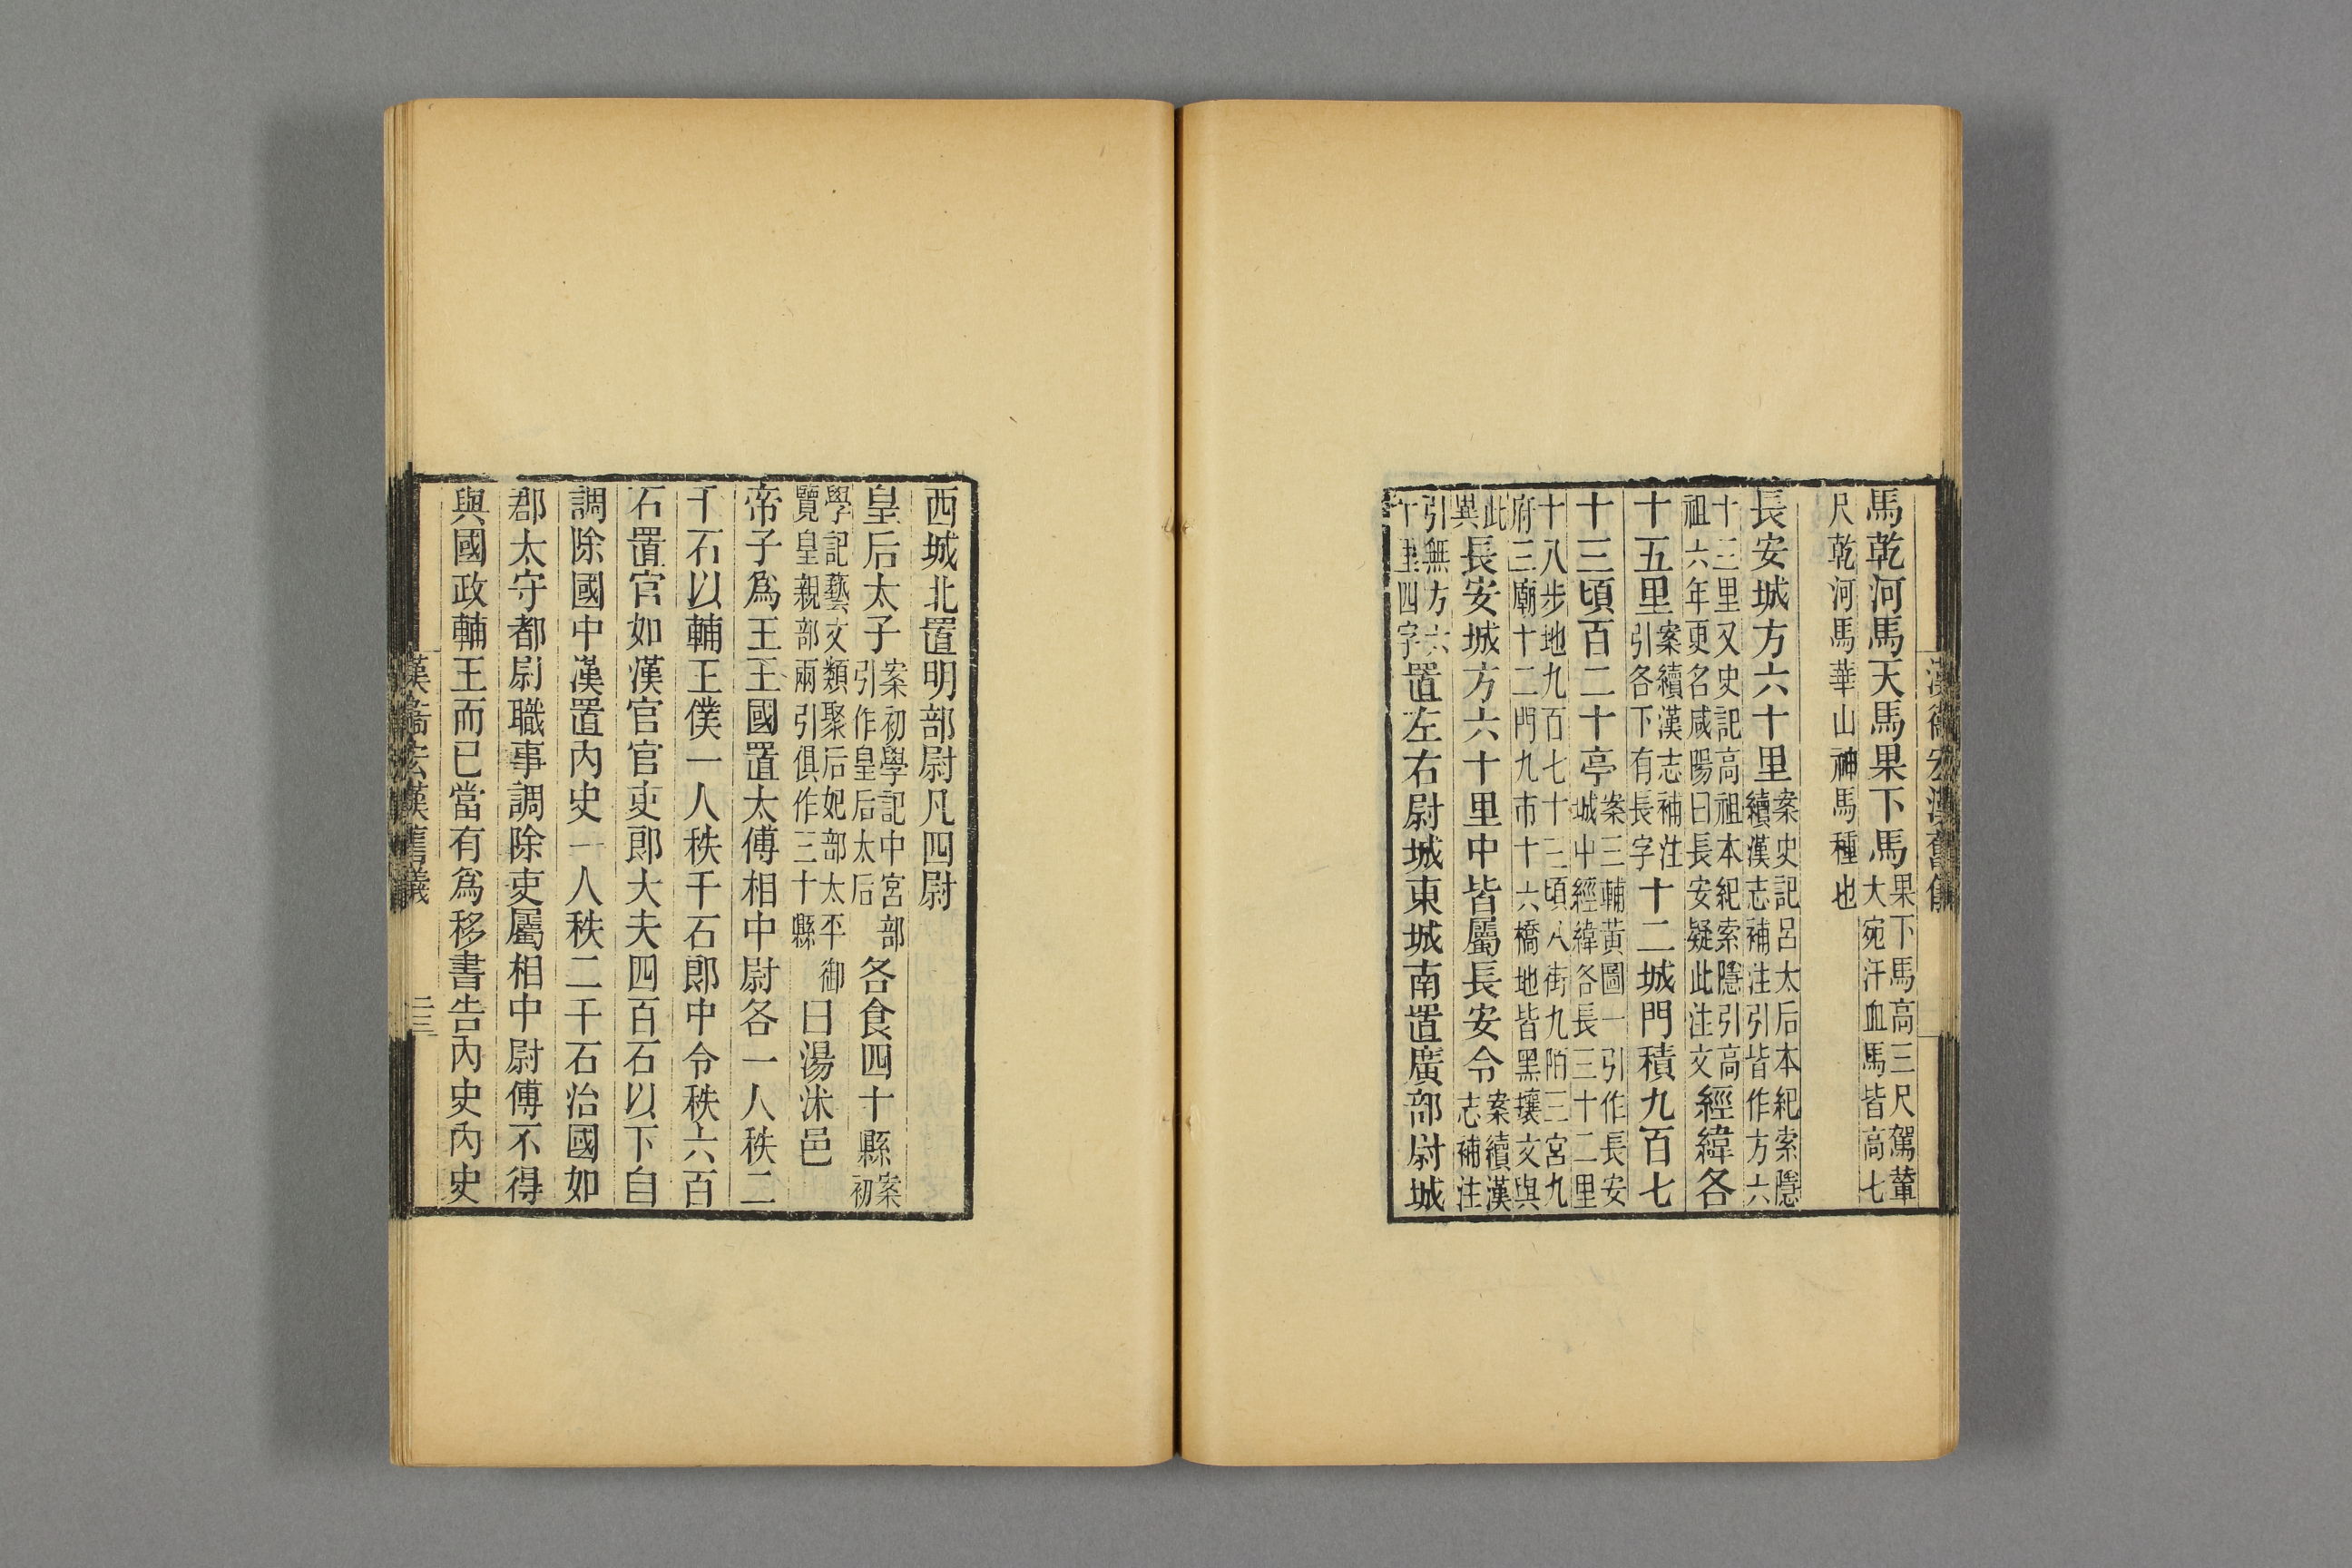 漢衞宏漢舊儀
馬乾河馬天馬果下馬果下馬高三尺駕輦大宛汗血馬皆高七
尺乾河馬華山神馬種也
長安城方六十里案史記呂太后本紀索隱續漢志補注引皆作方六
十三里又史記高祖本紀索隱引高祖六年更名咸陽曰長安疑此注文經緯各
十五里案續漢志補注引各下有長字十二城門積九百七
十三頃百二十亭案三輔黃圖一引作長安城中經緯各長三十二里
十八步地九百七十三頃八街九陌三宮九府三廟十二門九市十六橋地皆黑壤文與
此異長安城方六十里中皆屬長安令案續漢志補注
引無方六十里四字置左右尉城東城南置廣部尉城
西城北置明部尉凡四尉
皇后太子案初學記中宮部引作皇后太后各食四十縣案初
學記藝文類聚后妃部太平御覽皇親部兩引俱作三十縣曰湯沐邑
帝子爲王王國置太傅相中尉各一人秩二
千石以輔王僕一人秩千石郎中令秩六百
石置官如漢官官吏郎大夫四百石以下自
調除國中漢置內史一人秩二千石治國如
郡太守都尉職事調除吏屬相中尉傅不得
與國政輔王而已當有爲移書告內史內史
漢衞宏漢舊儀